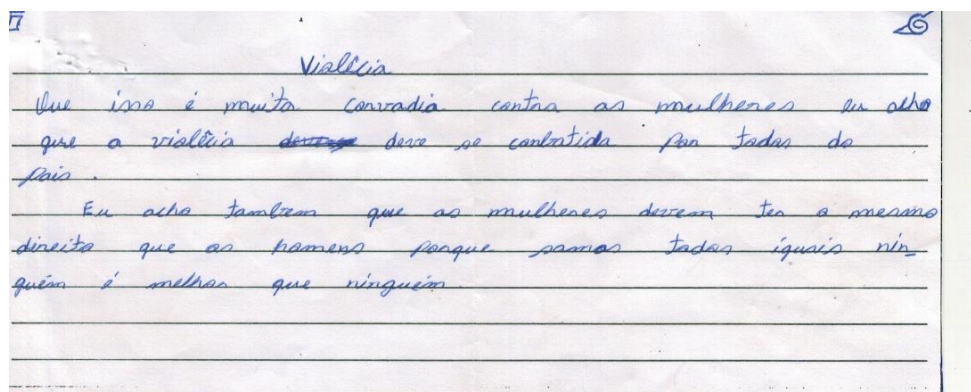 Violêcia
Que isso é muita convadia contra as mulheres eu acho
que a violêcia deve se conbatida por todos do
país.
Eu acho tambem que as mulheres devem ter o mesmo
direito que os homens porque somos todos iguais nin-
guém é melhor que ninguém.